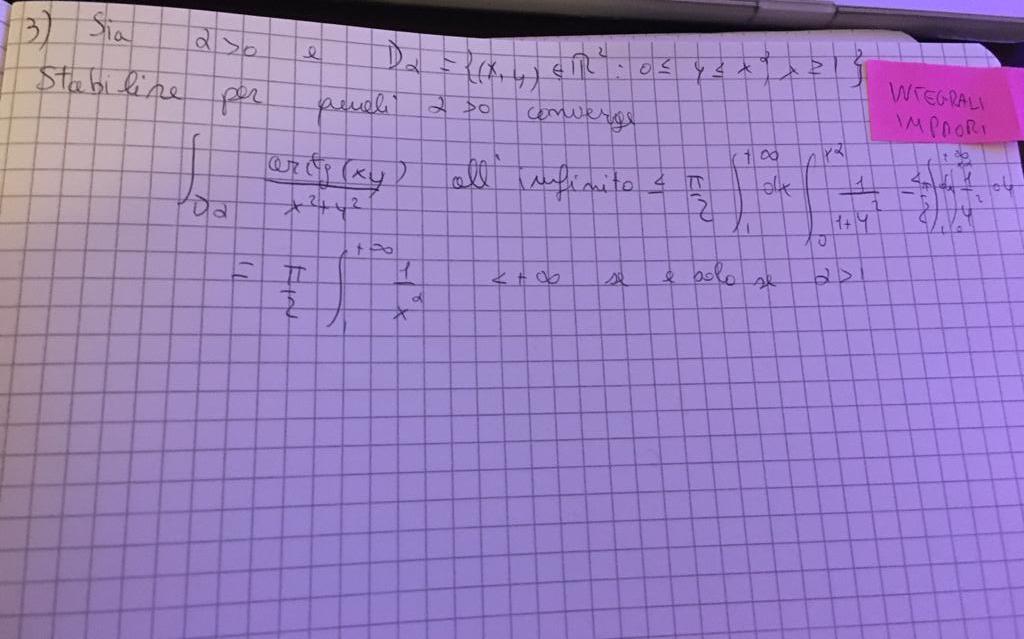 3) Sia α>0 e Dα = {(x,y) ∈ ℝ² : 0 ≤ y ≤ x^α, x ≥ 1}
Stabilire per quali α>0 converge
INTEGRALI
IMPROPRI
∫_{Dα} arctg(xy) / (x²+y²) all' infinito ≤ π/2 ∫_1^{+∞} dx ∫_0^{x^α} 1/(1+y²)
= π/2 ∫_1^{+∞} 1/x^α < +∞ se e solo se α>1